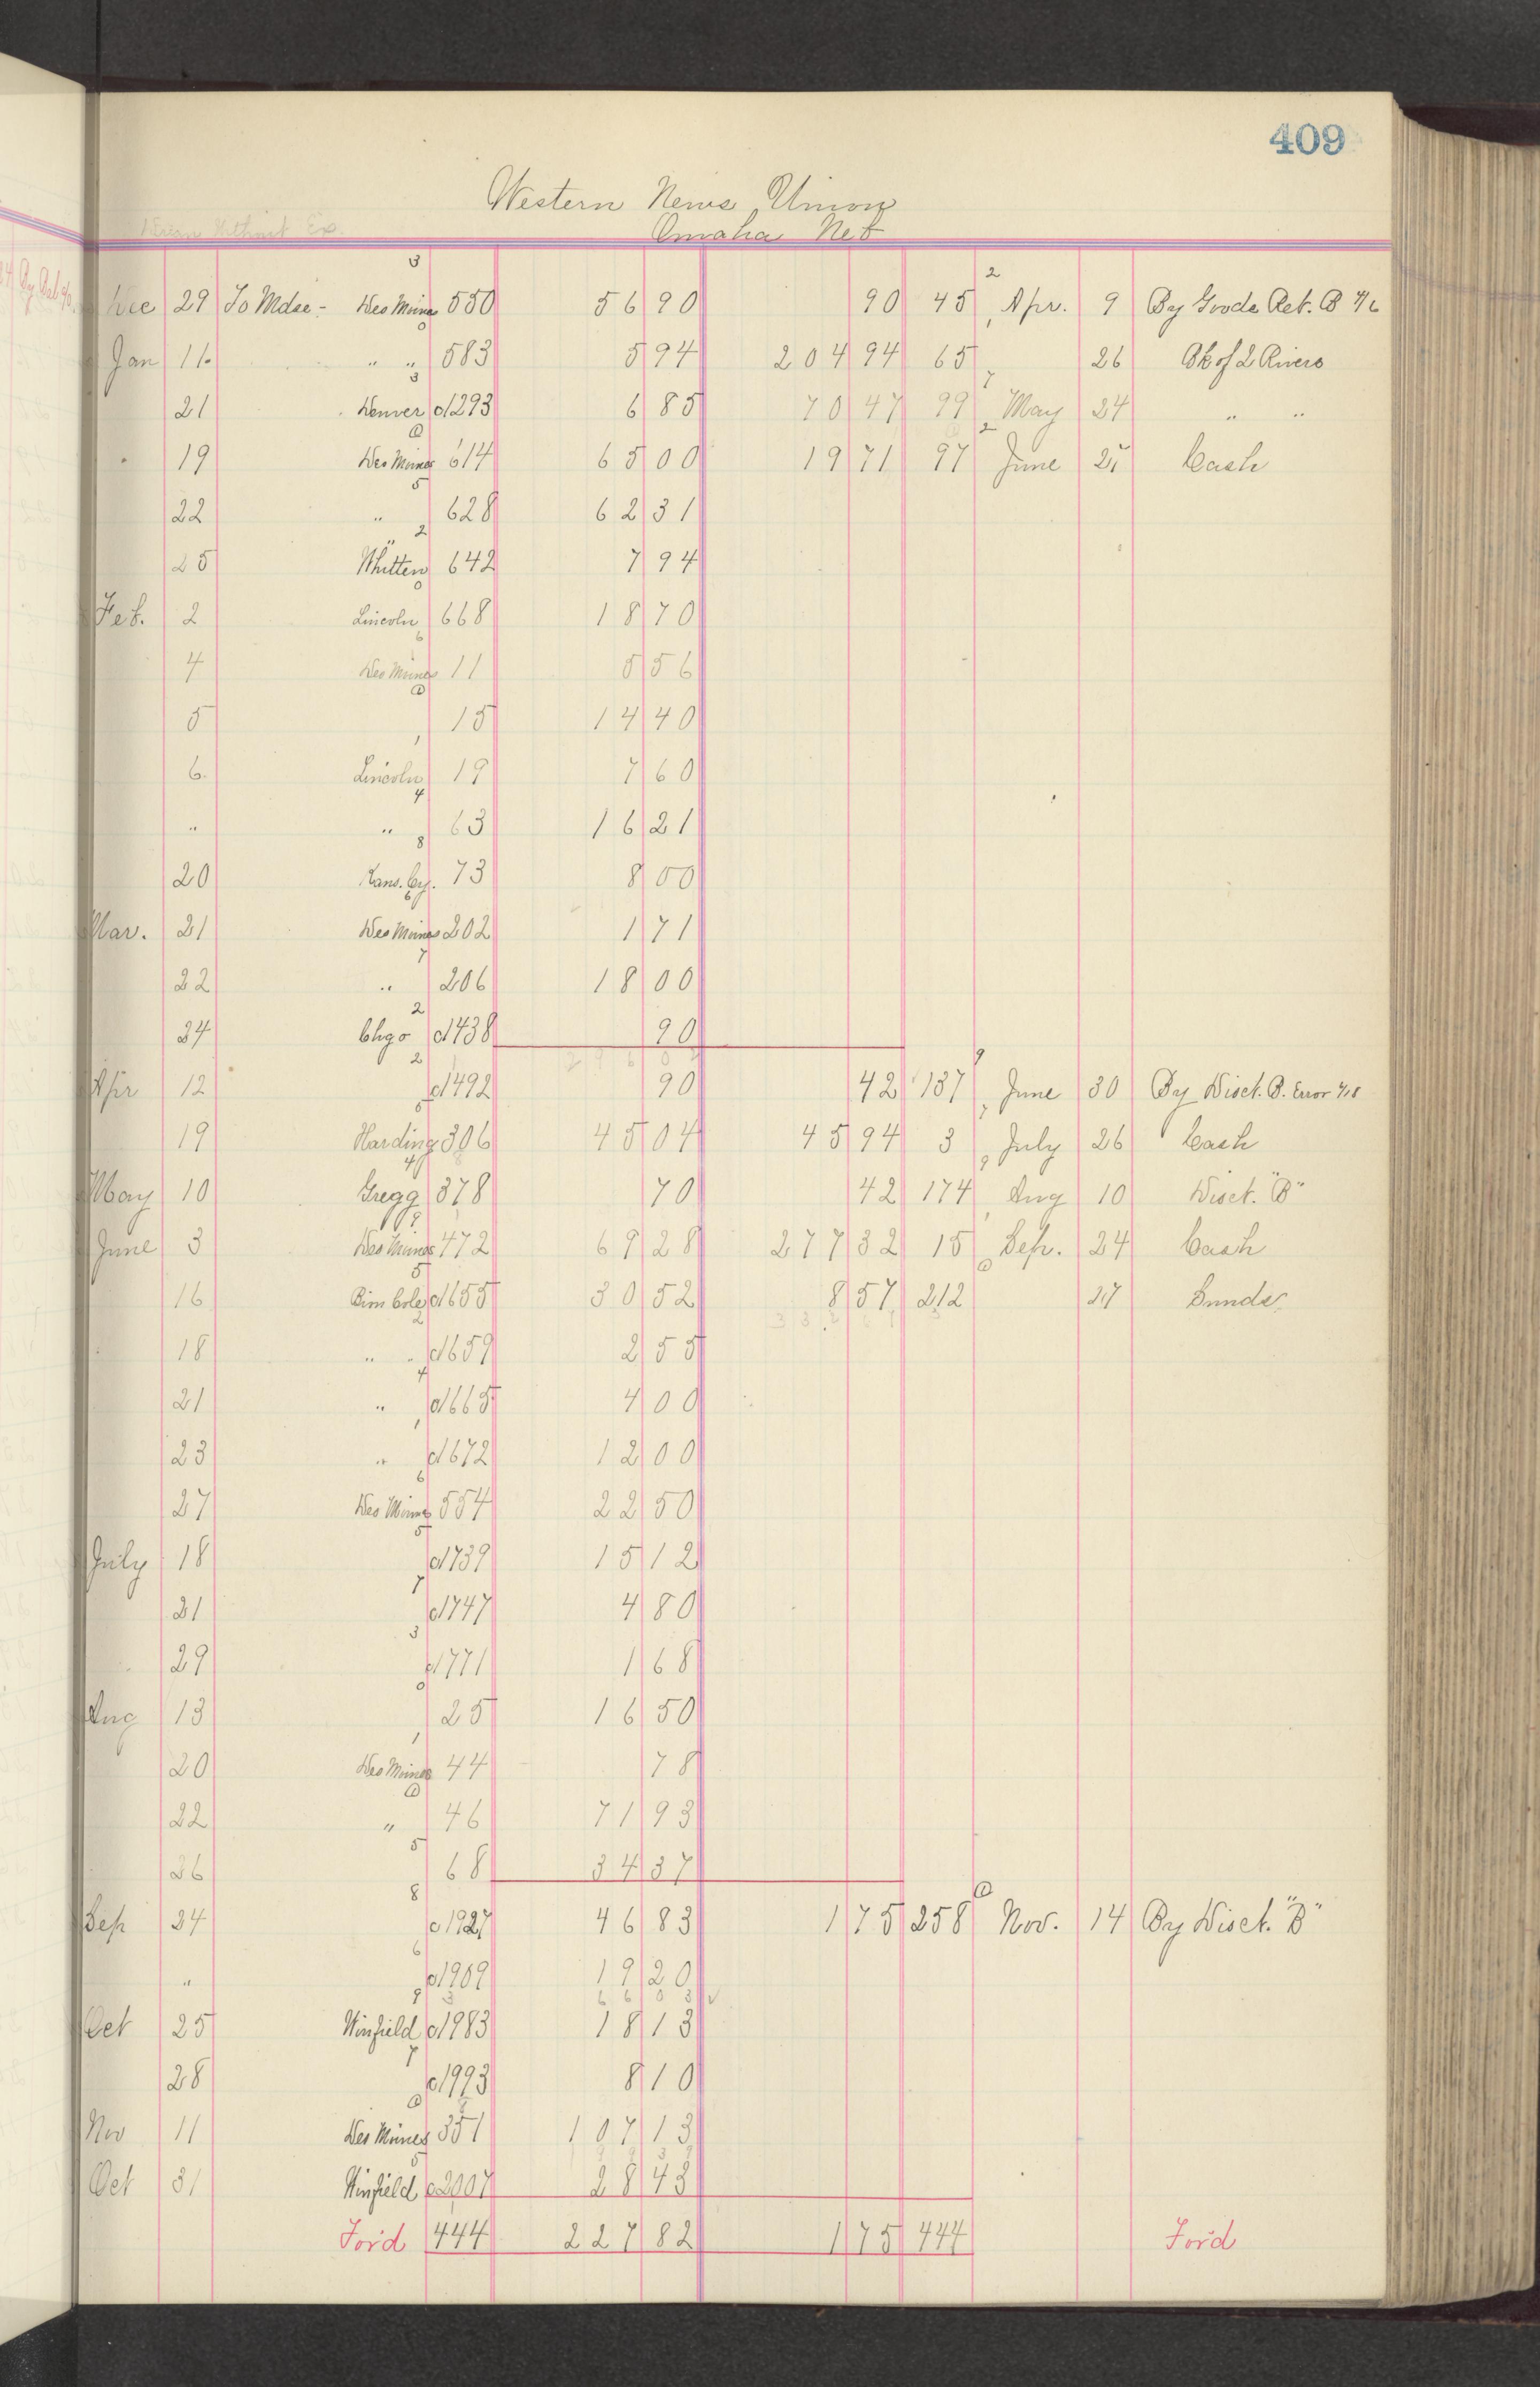 409
Western News Union
Omaha Neb
3 2
Dec 29 To Mdse - Des Moines 550 56 90 90 45 Apr. 9 By Goods Ret. B 4/6
Jan 11 " " 583 5 94 204 94 65 26 Bk of 2 Rivers
3 7
21 Denver c1293 6 85 70 47 99 May 24 " "
2
" 19 Des Moines 614 65 00 19 71 97 June 25 Cash
5
22 " 628 62 31
2
25 Whitten 642 7 94
0
Feb. 2 Lincoln 668 18 70
6
4 Des Moines 11 5 56
5 15 14 40
1
6 Lincoln 19 7 60
4
" " 63 16 21
8
20 Kans. Cy. 73 8 00
6
Mar. 21 Des Moines 202 1 71
7
22 " 206 18 00
2
24 Chgo c1438 90
2 9
Apr 12 c1492 90 42 137 June 30 By Disct. B. Error 4/18
19 Harding 306 45 04 45 94 3 July 26 Cash
4 9
May 10 Gregg 378 70 42 174 Aug 10 Disct. "B"
9
June 3 Des Moines 472 69 28 277 32 15 Sep. 24 Cash
5
16 Bim Cole c1655 30 52 8 57 212 27 Sundr
2
18 " " c1659 2 55
4
21 " c1665 4 00
1
23 " c1672 12 00
6
27 Des Moines 554 22 50
5
July 18 c1739 15 12
7
21 c1747 4 80
3
29 c1771 1 68
9
Aug 13 25 16 50
1
20 Des Moines 44 78
22 " 46 71 93
5
26 68 34 37
8
Sep 24 c1927 46 83 1 75 258 Nov. 14 By Disct. "B"
6
" c1909 19 20
9 66 03 ✓
Oct 25 Winfield c1983 18 13
7
28 c1993 8 10
Nov 11 Des Moines 351 107 13
5
Oct 31 Winfield c2007 28 43
For'd 444 227 82 1 75 444 For'd